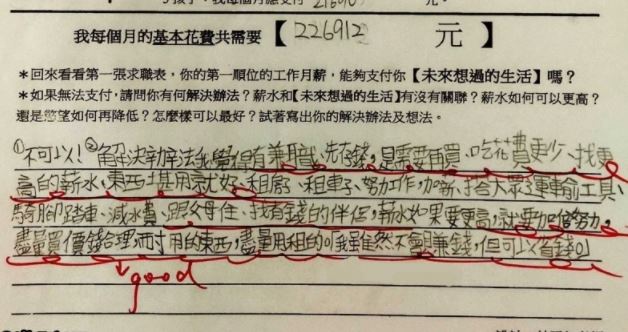 我每個月的基本花費共需要【226912 元】
＊回來看看第一張求職表，你的第一順位的工作月薪，能夠支付你【未來想過的生活】嗎？
＊如果無法支付，請問你有何解決辦法？薪水和【未來想過的生活】有沒有關聯？薪水如何可以更高？
還是慾望如何再降低？怎麼樣可以最好？試著寫出你的解決辦法及想法。
①不可以！②解決辦法我覺得有兼職、先存錢，是需要再買、吃花費更少、找更
高的薪水、東西堪用就好、租房、租車、努力工作，加薪、搭大眾運輸工具、
騎腳踏車、減水費、跟父母住、找有錢的伴侶，薪水如果要更高，就要加倍努力，
盡量買價錢合理，耐用的東西，盡量用租的。我雖然不會賺錢，但可以省錢。
good